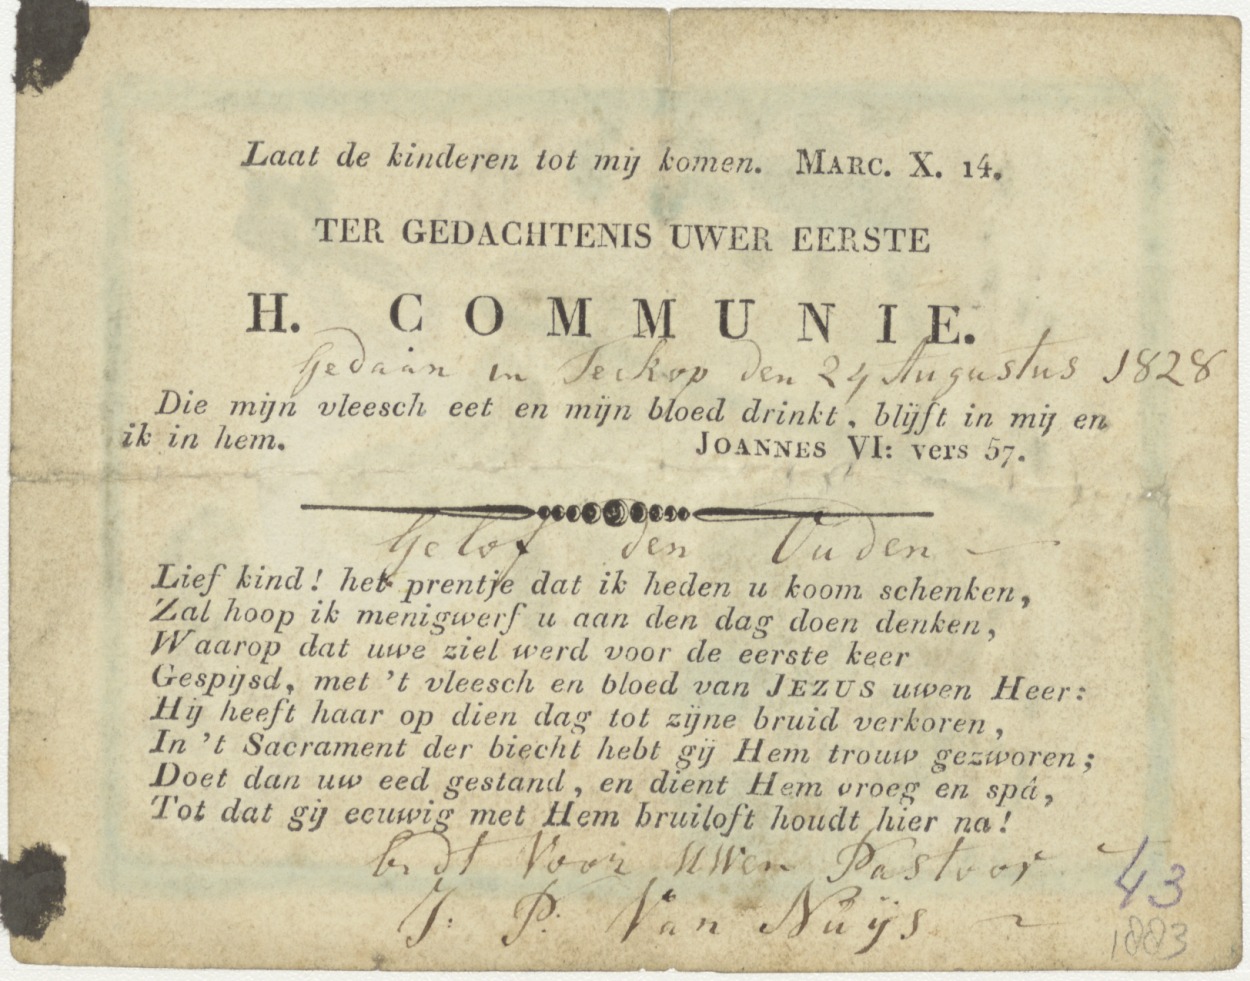 Laat de kinderen tot mij komen. MARC. X. 14.
TER GEDACHTENIS UWER EERSTE
H. COMMUNIE.
Gedaan in Teckop den 24 Augustus 1828
Die mijn vleesch eet en mijn bloed drinkt, blijft in mij en
ik in hem. JOANNES VI: vers 57.
Gelof den Ouden
Lief kind! het prentje dat ik heden u koom schenken,
Zal hoop ik menigwerf u aan den dag doen denken,
Waarop dat uwe ziel werd voor de eerste keer
Gespijsd, met 't vleesch en bloed van JEZUS uwen Heer:
Hij heeft haar op dien dag tot zijne bruid verkoren,
In 't Sacrament der biecht hebt gij Hem trouw gezworen;
Doet dan uw eed gestand, en dient Hem vroeg en spâ,
Tot dat gij eeuwig met Hem bruiloft houdt hier na!
bidt Voor UWen Pastoor
J: P: Van Nuijs
43
1883